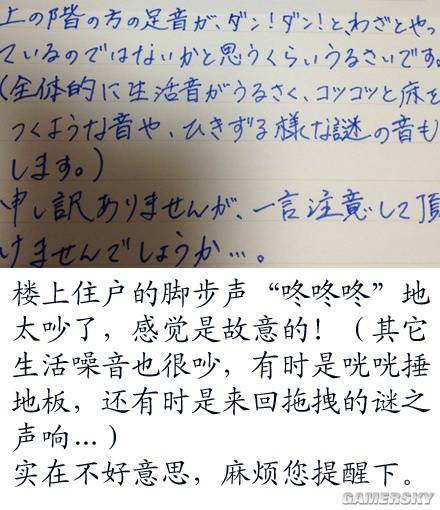 上の階の方の足音が、ダン！ダン！と、わざとやっ
ているのではないかと思うくらいうるさいです。
（全体的に生活音がうるさく、コツコツと床を
つくような音や、ひきずる様な謎の音も
します。）
申し訳ありませんが、一言注意して頂
けませんでしょうか…。
楼上住户的脚步声“咚咚咚”地
太吵了，感觉是故意的！（其它
生活噪音也很吵，有时是咣咣捶
地板，还有时是来回拖拽的谜之
声响…）
实在不好意思，麻烦您提醒下。
GAMERSKY